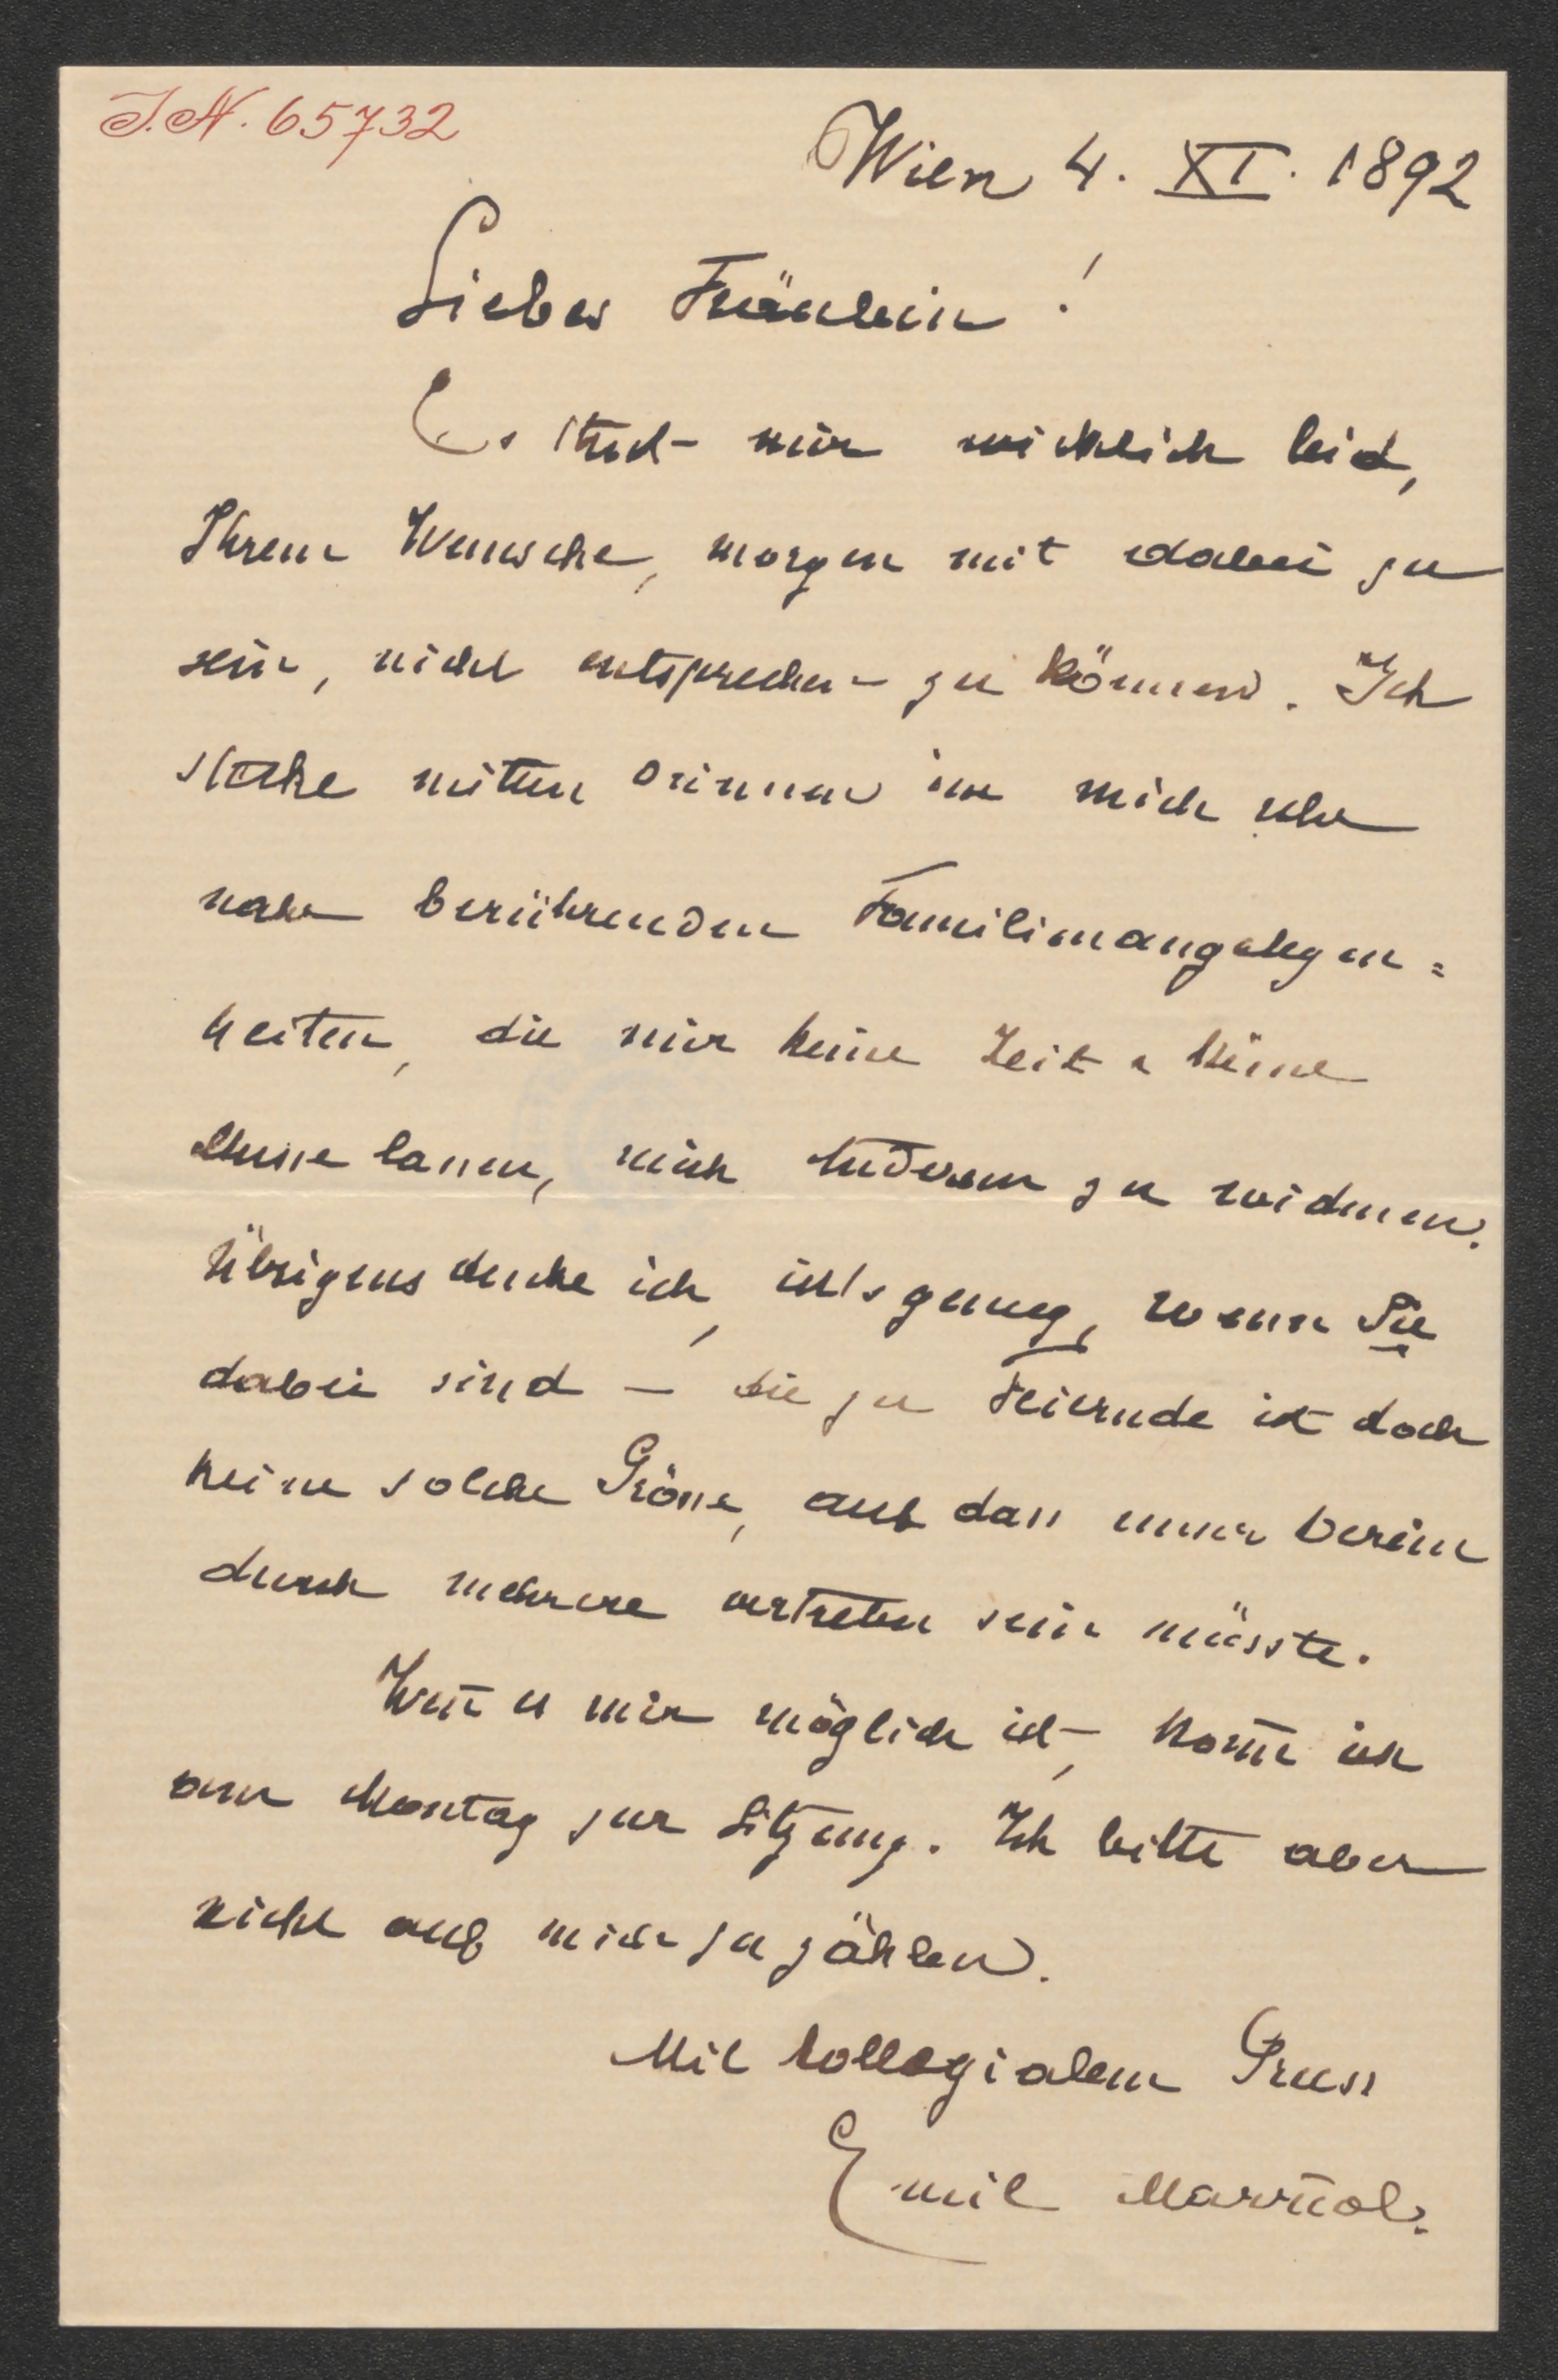 I.N. 65732
Wien 4. XI. 1892
Liebes Fräulein!
Es thut mir wirklich leid,
Ihrem Wunsche, morgen mit dabei zu
sein, nicht entsprechen zu können. Ich
stecke mitten drinnen in mich sehr
nahe berührenden Familienangelegen=
heiten, die mir keine Zeit u keine
Musse lassen, mich Anderem zu widmen.
Übrigens denke ich, ists genug, wenn Sie
dabei sind – die zu Feiernde ist doch
keine solche Grösse, als dass unser Verein
durch mehrere vertreten sein müsste.
Wen̄ es mir möglich ist, kom̄e ich
am Montag zur Sitzung. Ich bitte aber
nicht auf mich zu zählen.
Mit kollegialem Gruss
Emil